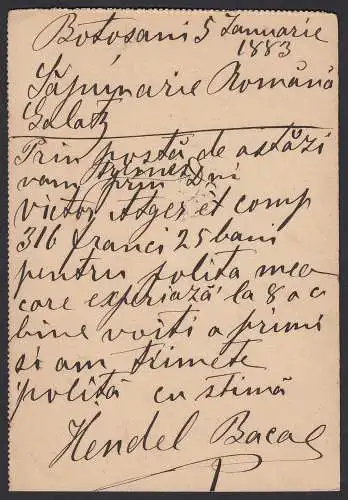 Botosani 5 Ianuarie
1883
Săpunărie Română
Galatz
Prin poștă de astăzi
vam trimes prin Dni
Victor Atger et comp
316 franci 25 bani
pentru polita mea
care experiază la 8 a c
bine voiti a primi
si am trimete
polită cu stimă
Hendel Bacal